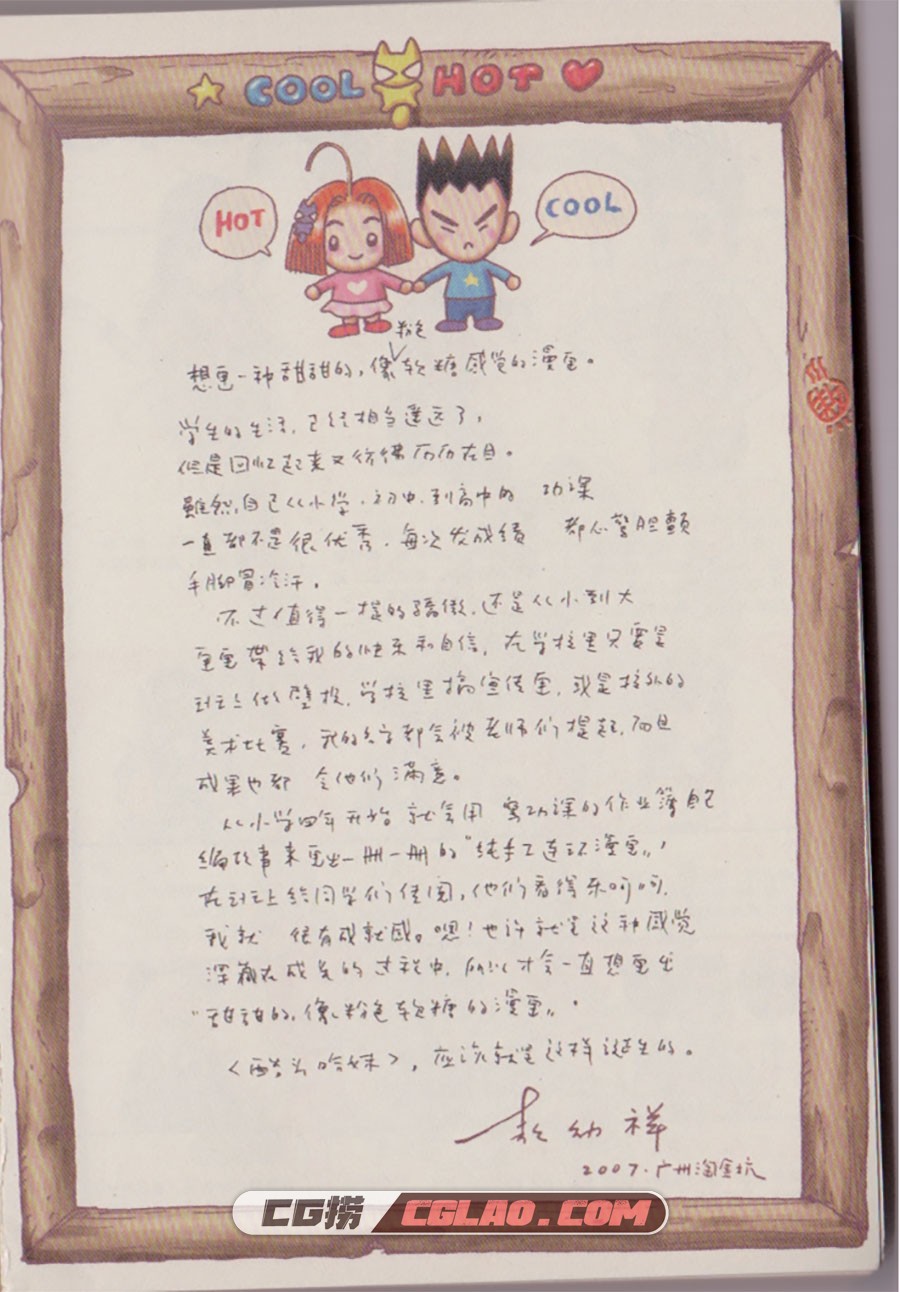 COOL HOT
HOT
COOL
粉色
想画一种甜甜的,像软糖感觉的漫画。
学生的生活,已经相当遥远了,
但是回忆起来又彷彿历历在目。
雖然,自己从小学、初中、到高中的 功课
一直都不是很优秀,每次发成绩 都心驚胆顫
手脚冒冷汗。
不过值得一提的驕傲,还是从小到大
画画带给我的快乐和自信,在学校里只要是
班上做壁报,学校里搞宣传画,或是校外的
美术比赛,我的名字都会被老师们提起,而且
成果也都 令他们滿意。
从小学四年开始 就会用 寫功课的作业簿自己
编故事来画出一冊一冊的“纯手工连环漫画”,
在班上给同学们传阅,他们看得乐呵呵,
我就 很有成就感。嗯!也许就是这种感觉
深藏在成长的过程中,所以才会一直想画出
“甜甜的,像粉色软糖的漫画”。
〈酷头哈妹〉,应该就是这样诞生的。
敖幼祥
2007.广州淘金坑
CG捞 CGLAO.COM